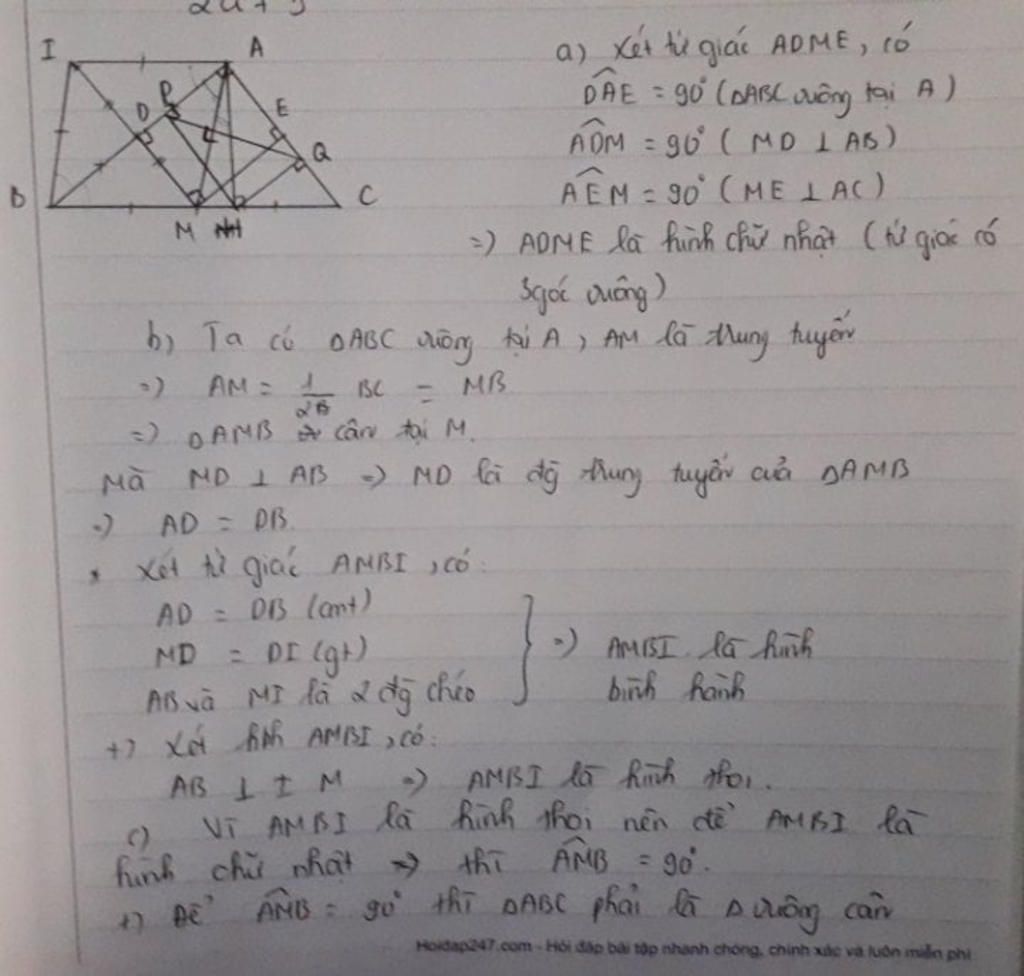 2a + 3
I
A
P
D
E
Q
B
C
M
H
a) Xét tứ giác ADME, có
DAE = 90° (ΔABC vuông tại A)
ADM = 90° ( MD ⊥ AB)
AEM = 90° (ME ⊥ AC)
=) ADME là hình chữ nhật (tứ giác có
3góc vuông)
b) Ta có ΔABC vuông tại A, AM là trung tuyến
=) AM = 1/2 BC = MB
=) ΔAMB cân tại M.
Mà MD ⊥ AB =) MD là đg̀ trung tuyến của ΔAMB
=) AD = DB.
* Xét tứ giác AMBI, có:
AD = DB (cmt)
MD = DI (gt)
AB và MI là 2 đg̀ chéo
=) AMBI là hình
bình hành
+) Xét hbh AMBI, có:
AB ⊥ I M =) AMBI là hình thoi.
c) Vì AMBI là hình thoi nên để AMBI là
hình chữ nhật => thì AMB = 90°.
+) Để AMB = 90° thì ΔABC phải là Δ vuông cân
Hoidap247.com - Hỏi đáp bài tập nhanh chóng, chính xác và luôn miễn phí